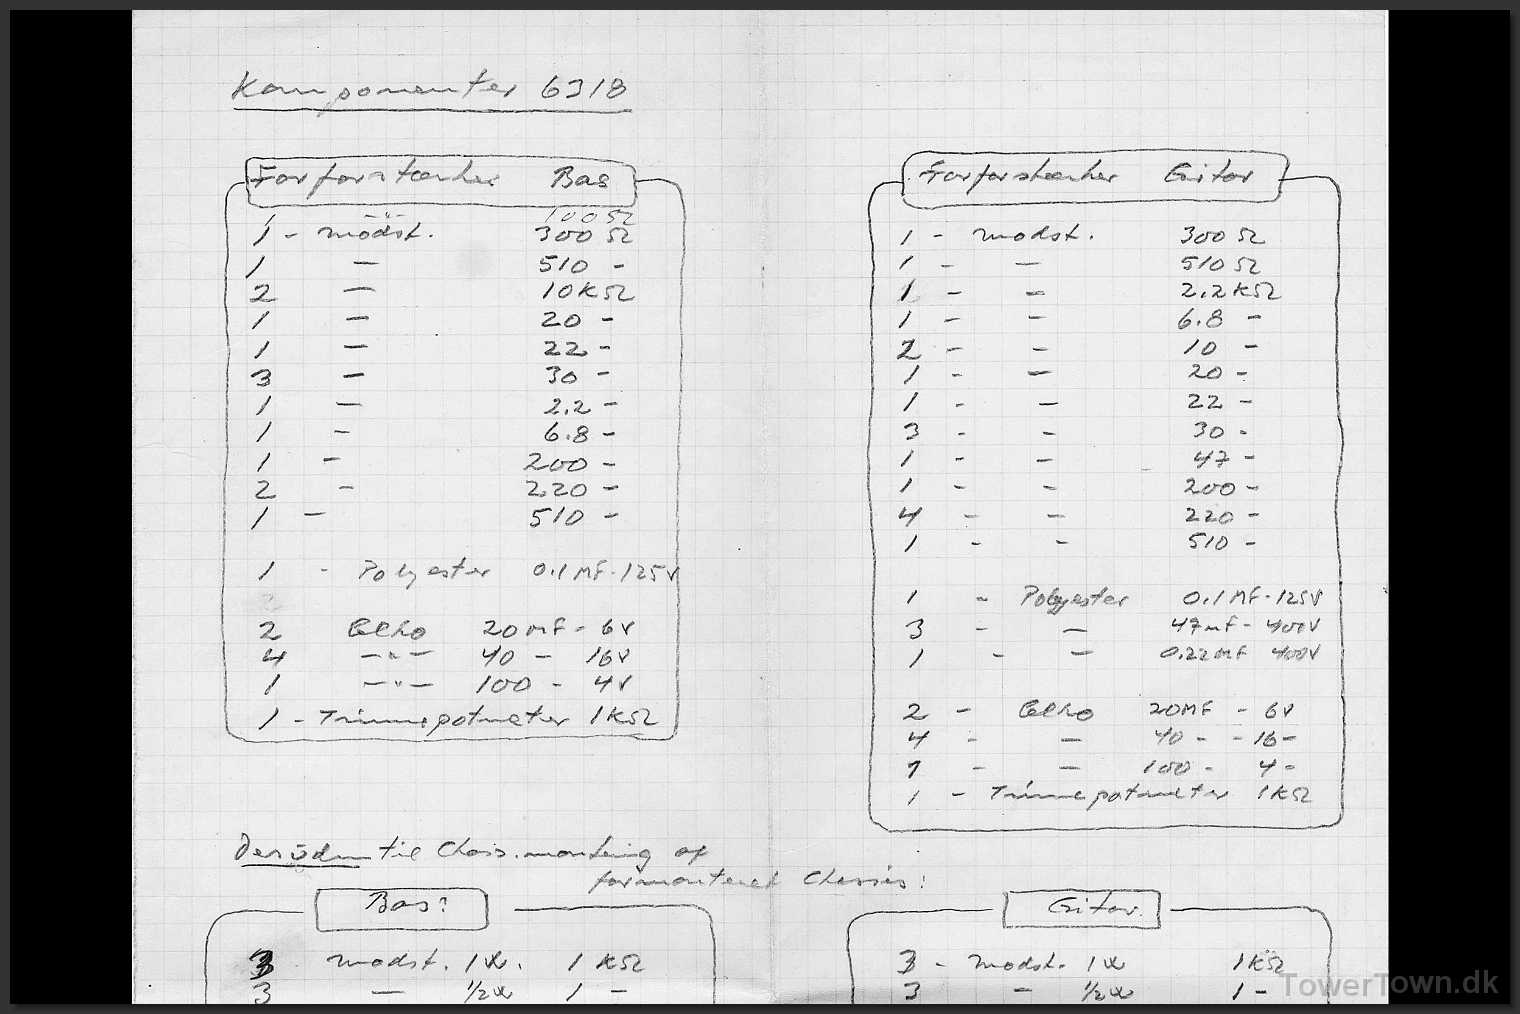 Komponenter 6318
Forforstærker Bas
1 - " - 100 Ω
1 - modst. 300 Ω
1 — 510 -
2 — 10K Ω
1 — 20 -
1 — 22 -
3 — 30 -
1 — 2.2 -
1 — 6.8 -
1 — 200 -
2 — 220 -
1 — 510 -
1 - Polyester 0.1 MF. 125V
2 Elko 20 MF - 6V
4 — " — 40 — 16V
1 — " — 100 - 4V
1 - Trimmepotmeter 1KΩ
Forforstærker Gitar
1 - modst. 300 Ω
1 - — 510 Ω
1 - - 2.2 KΩ
1 - - 6.8 -
2 - - 10 -
1 - — 20 -
1 - — 22 -
3 - - 30 -
1 - — 47 -
1 - - 200 -
4 - — 220 -
1 - - 510 -
1 - Polyester 0.1 MF - 125V
3 - — 47 mF - 400V
1 - — 0.22 MF 400V
2 - Elko 20MF - 6V
4 - — 40 - - 16 -
1 - — 100 - 4 -
1 - Trimmepotmeter 1KΩ
Desuden til Chais. montering af
formonteret Chassis:
Bas:
3 modst. 1W. 1 KΩ
3 — 1/2W 1 -
Gitar.
3 - modst. 1W 1KΩ
3 - 1/2W 1 -
TowerTown.dk